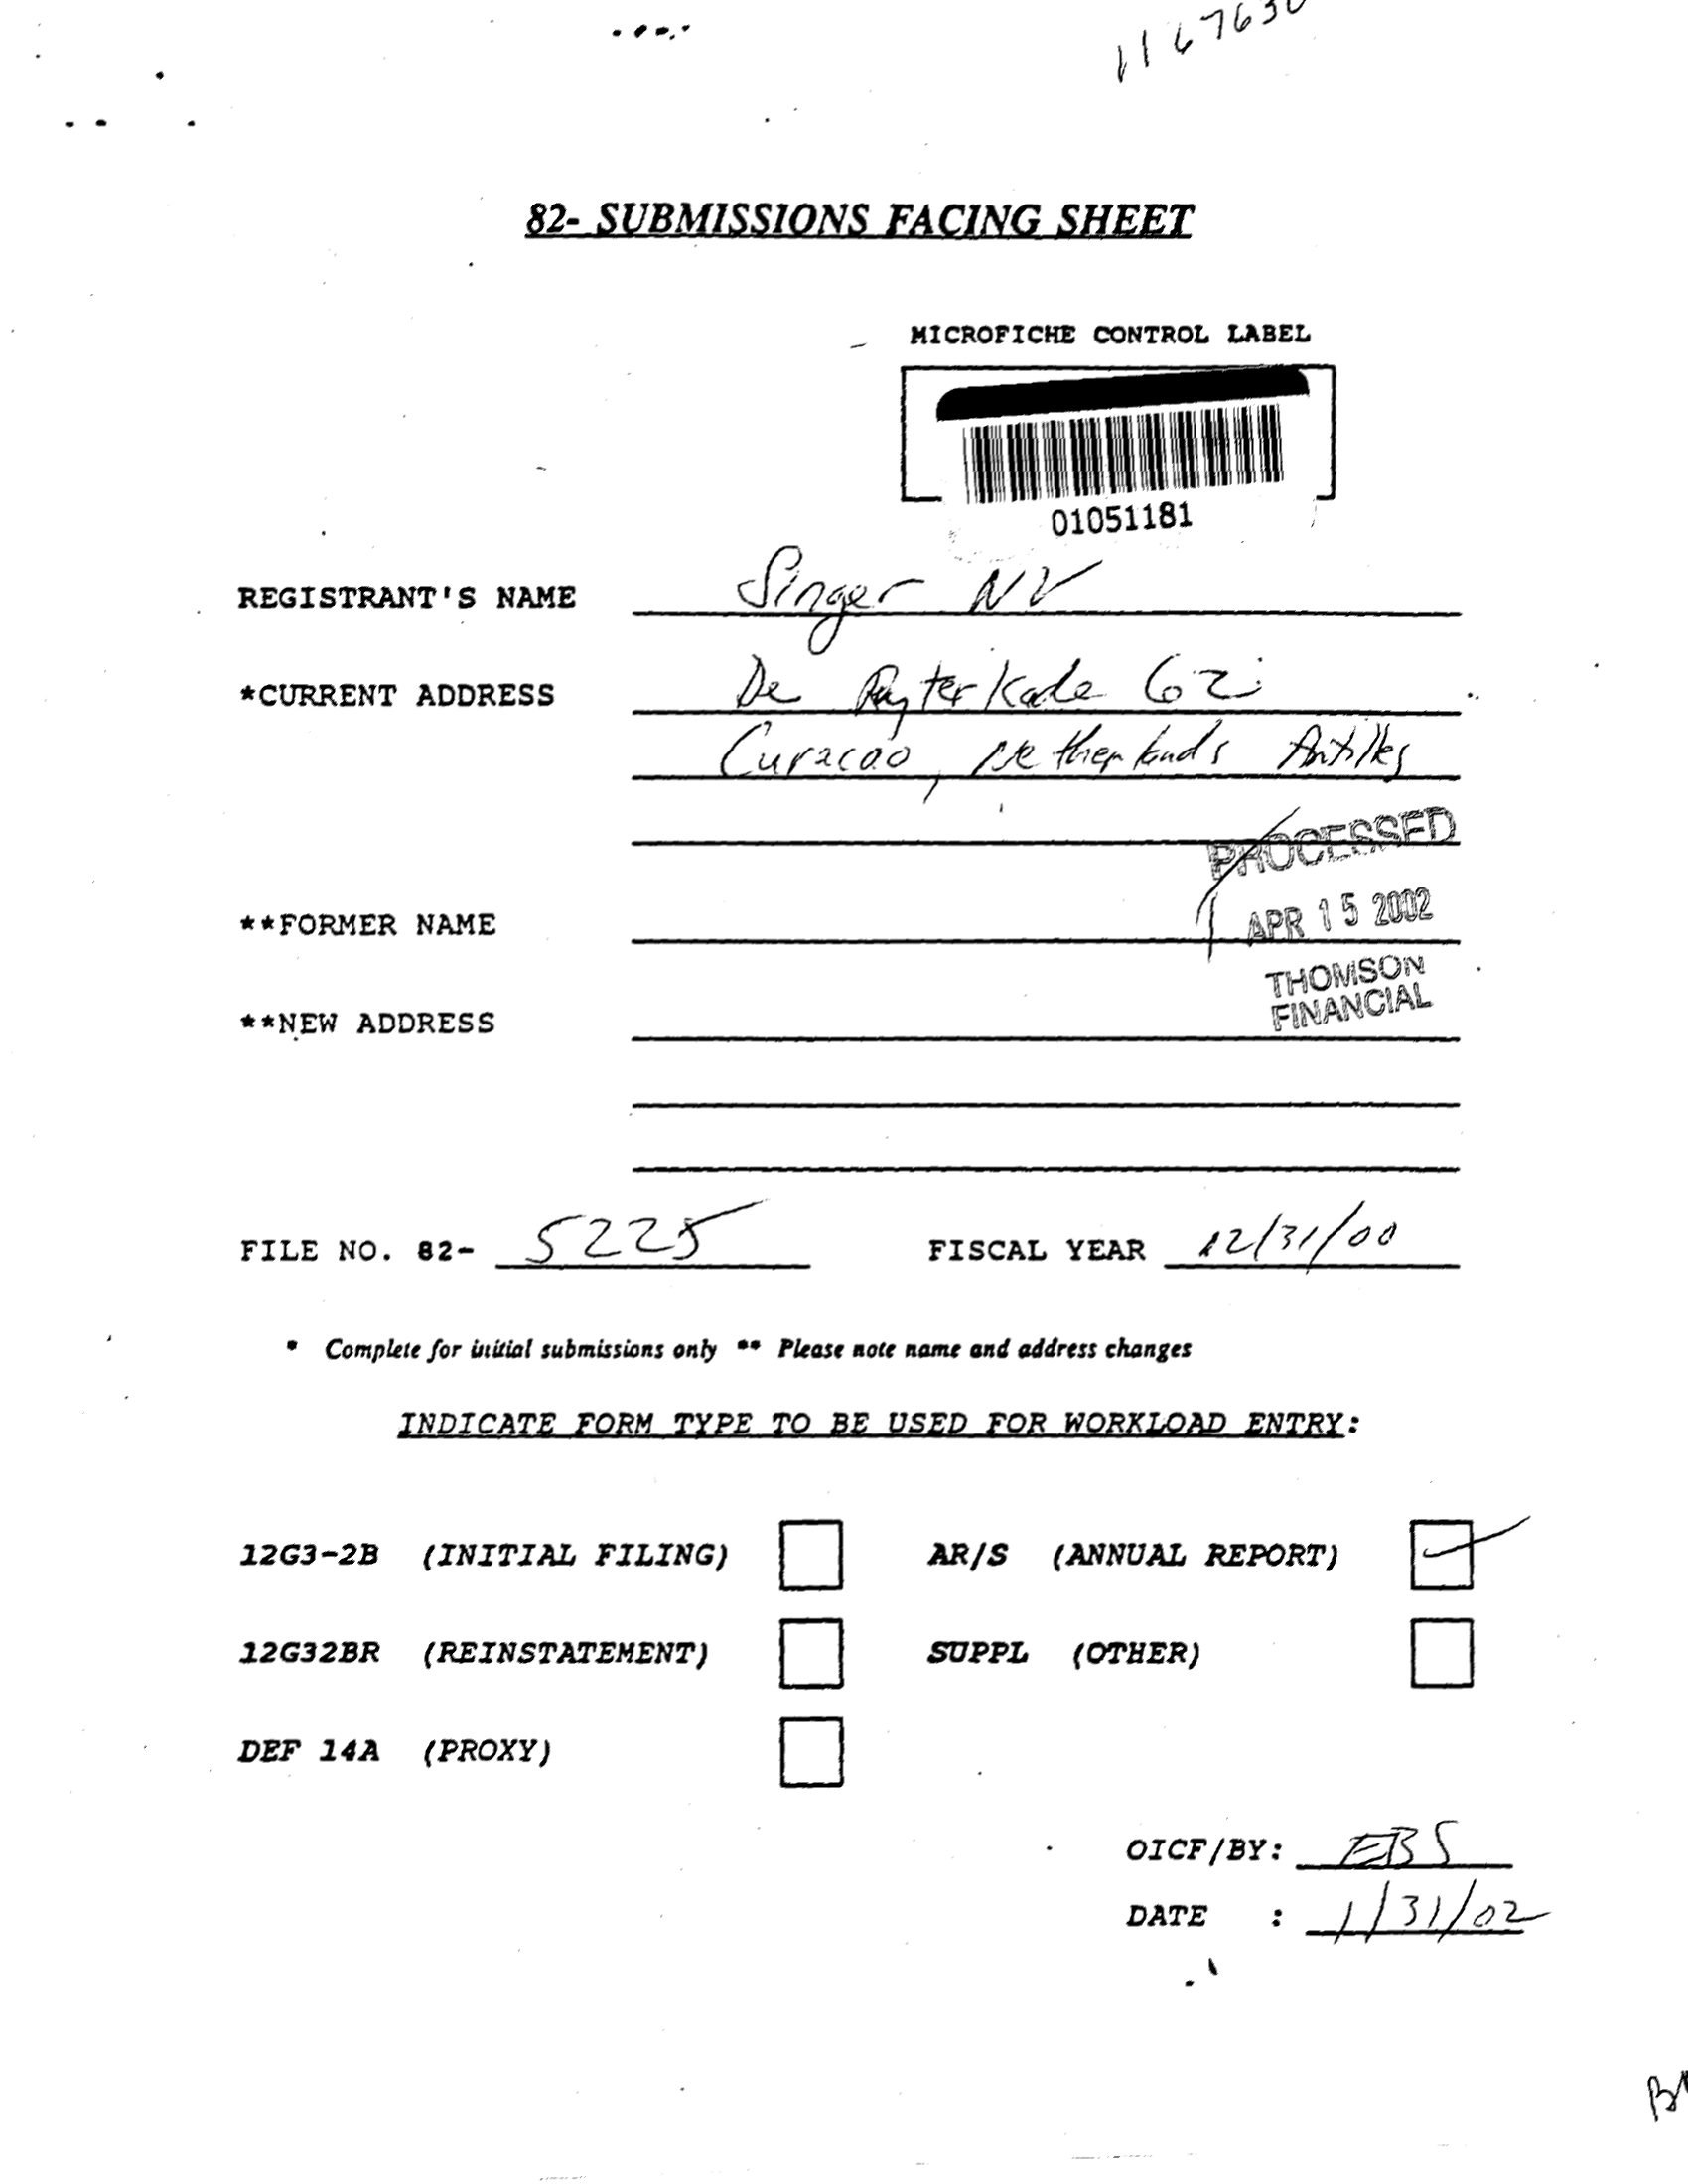 82- SUBMISSIONS FACING SHEET
MICROFICHE CONTROL LABEL
01051181
REGISTRANT'S NAME Singer NV
*CURRENT ADDRESS De Ruyterkade 62
Curacao, Netherlands Antilles
PROCESSED
**FORMER NAME
APR 15 2002
THOMSON
FINANCIAL
**NEW ADDRESS
FILE NO. 82- 5225 FISCAL YEAR 12/31/00
* Complete for initial submissions only ** Please note name and address changes
INDICATE FORM TYPE TO BE USED FOR WORKLOAD ENTRY:
12G3-2B (INITIAL FILING) AR/S (ANNUAL REPORT)
12G32BR (REINSTATEMENT) SUPPL (OTHER)
DEF 14A (PROXY)
OICF/BY: EBS
DATE : 1/31/02